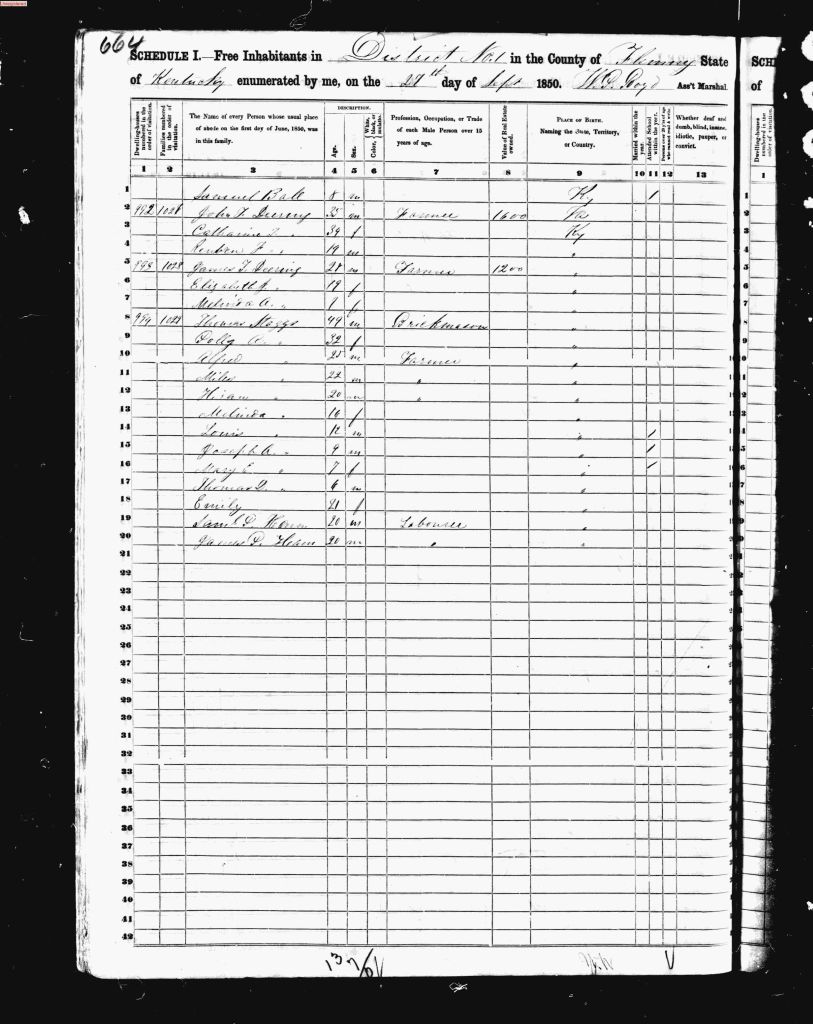 664
SCHEDULE I.—Free Inhabitants in District No 1 in the County of Fleming State
of Kentucky enumerated by me, on the 27th day of Sept 1850. Ass't Marshal.
SCHE
of
Dwelling-houses numbered in the order of visitation.
Families numbered in the order of visitation.
The Name of every Person whose usual place of abode on the first day of June, 1850, was in this family.
DESCRIPTION.
Age.
Sex.
Color, White, black, or mulatto.
Profession, Occupation, or Trade of each Male Person over 15 years of age.
Value of Real Estate owned.
PLACE OF BIRTH. Naming the State, Territory, or Country.
Married within the year.
Attended School within the year.
Whether deaf and dumb, blind, insane, idiotic, pauper, or convict.
1 2 3 4 5 6 7 8 9 10 11 12 13
1 Samuel Ball 8 m Ky 1
2 992 John Deering 35 m Farmer 1600 Va
3 Catharine " 39 f Ky
4 Reuben " 19 m "
5 James T. Deering 28 m Farmer 1200 "
6 Elizabeth " 19 f "
7 Melinda A. " 1 f "
8 Thomas 49 m Brickmason "
9 Polly A. " 32 f "
10 Alfred " 25 m Farmer "
11 Miles " 22 m " "
12 Hiram " 20 m " "
13 Melinda " 16 f "
14 Louis " 12 m " 1
15 Joseph A. " 9 m " 1
16 Mary E. " 7 f " 1
17 Thomas " m "
18 Emily 21 f "
19 20 m Labourer "
20 James 20 m " "
21
22
23
24
25
26
27
28
29
30
31
32
33
34
35
36
37
38
39
40
41
42